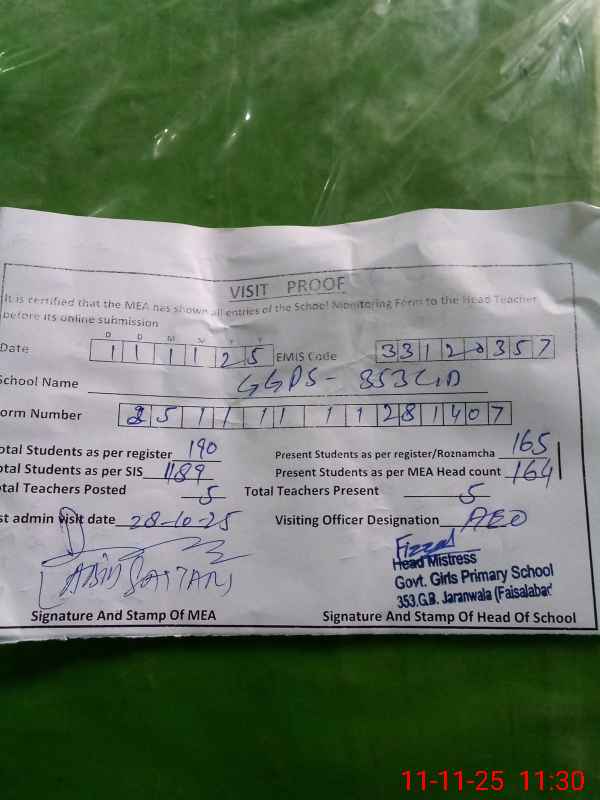 VISIT PROOF
It is certified that the MEA has shown all entries of the School Monitoring Form to the Head Teacher
before its online submission
D D M M Y Y
Date 1 1 1 1 2 5 EMIS Code 3 3 1 2 0 3 5 7
School Name GGPS - 353 GB
Form Number 2 5 1 1 1 1 1 1 1 2 8 1 4 0 7
otal Students as per register 190 Present Students as per register/Roznamcha 165
otal Students as per SIS 189 Present Students as per MEA Head count 164
otal Teachers Posted 5 Total Teachers Present 5
st admin visit date 28-10-25 Visiting Officer Designation AEO
Head Mistress
Govt. Girls Primary School
353.G.B. Jaranwala (Faisalabad
Signature And Stamp Of MEA Signature And Stamp Of Head Of School
11-11-25 11:30